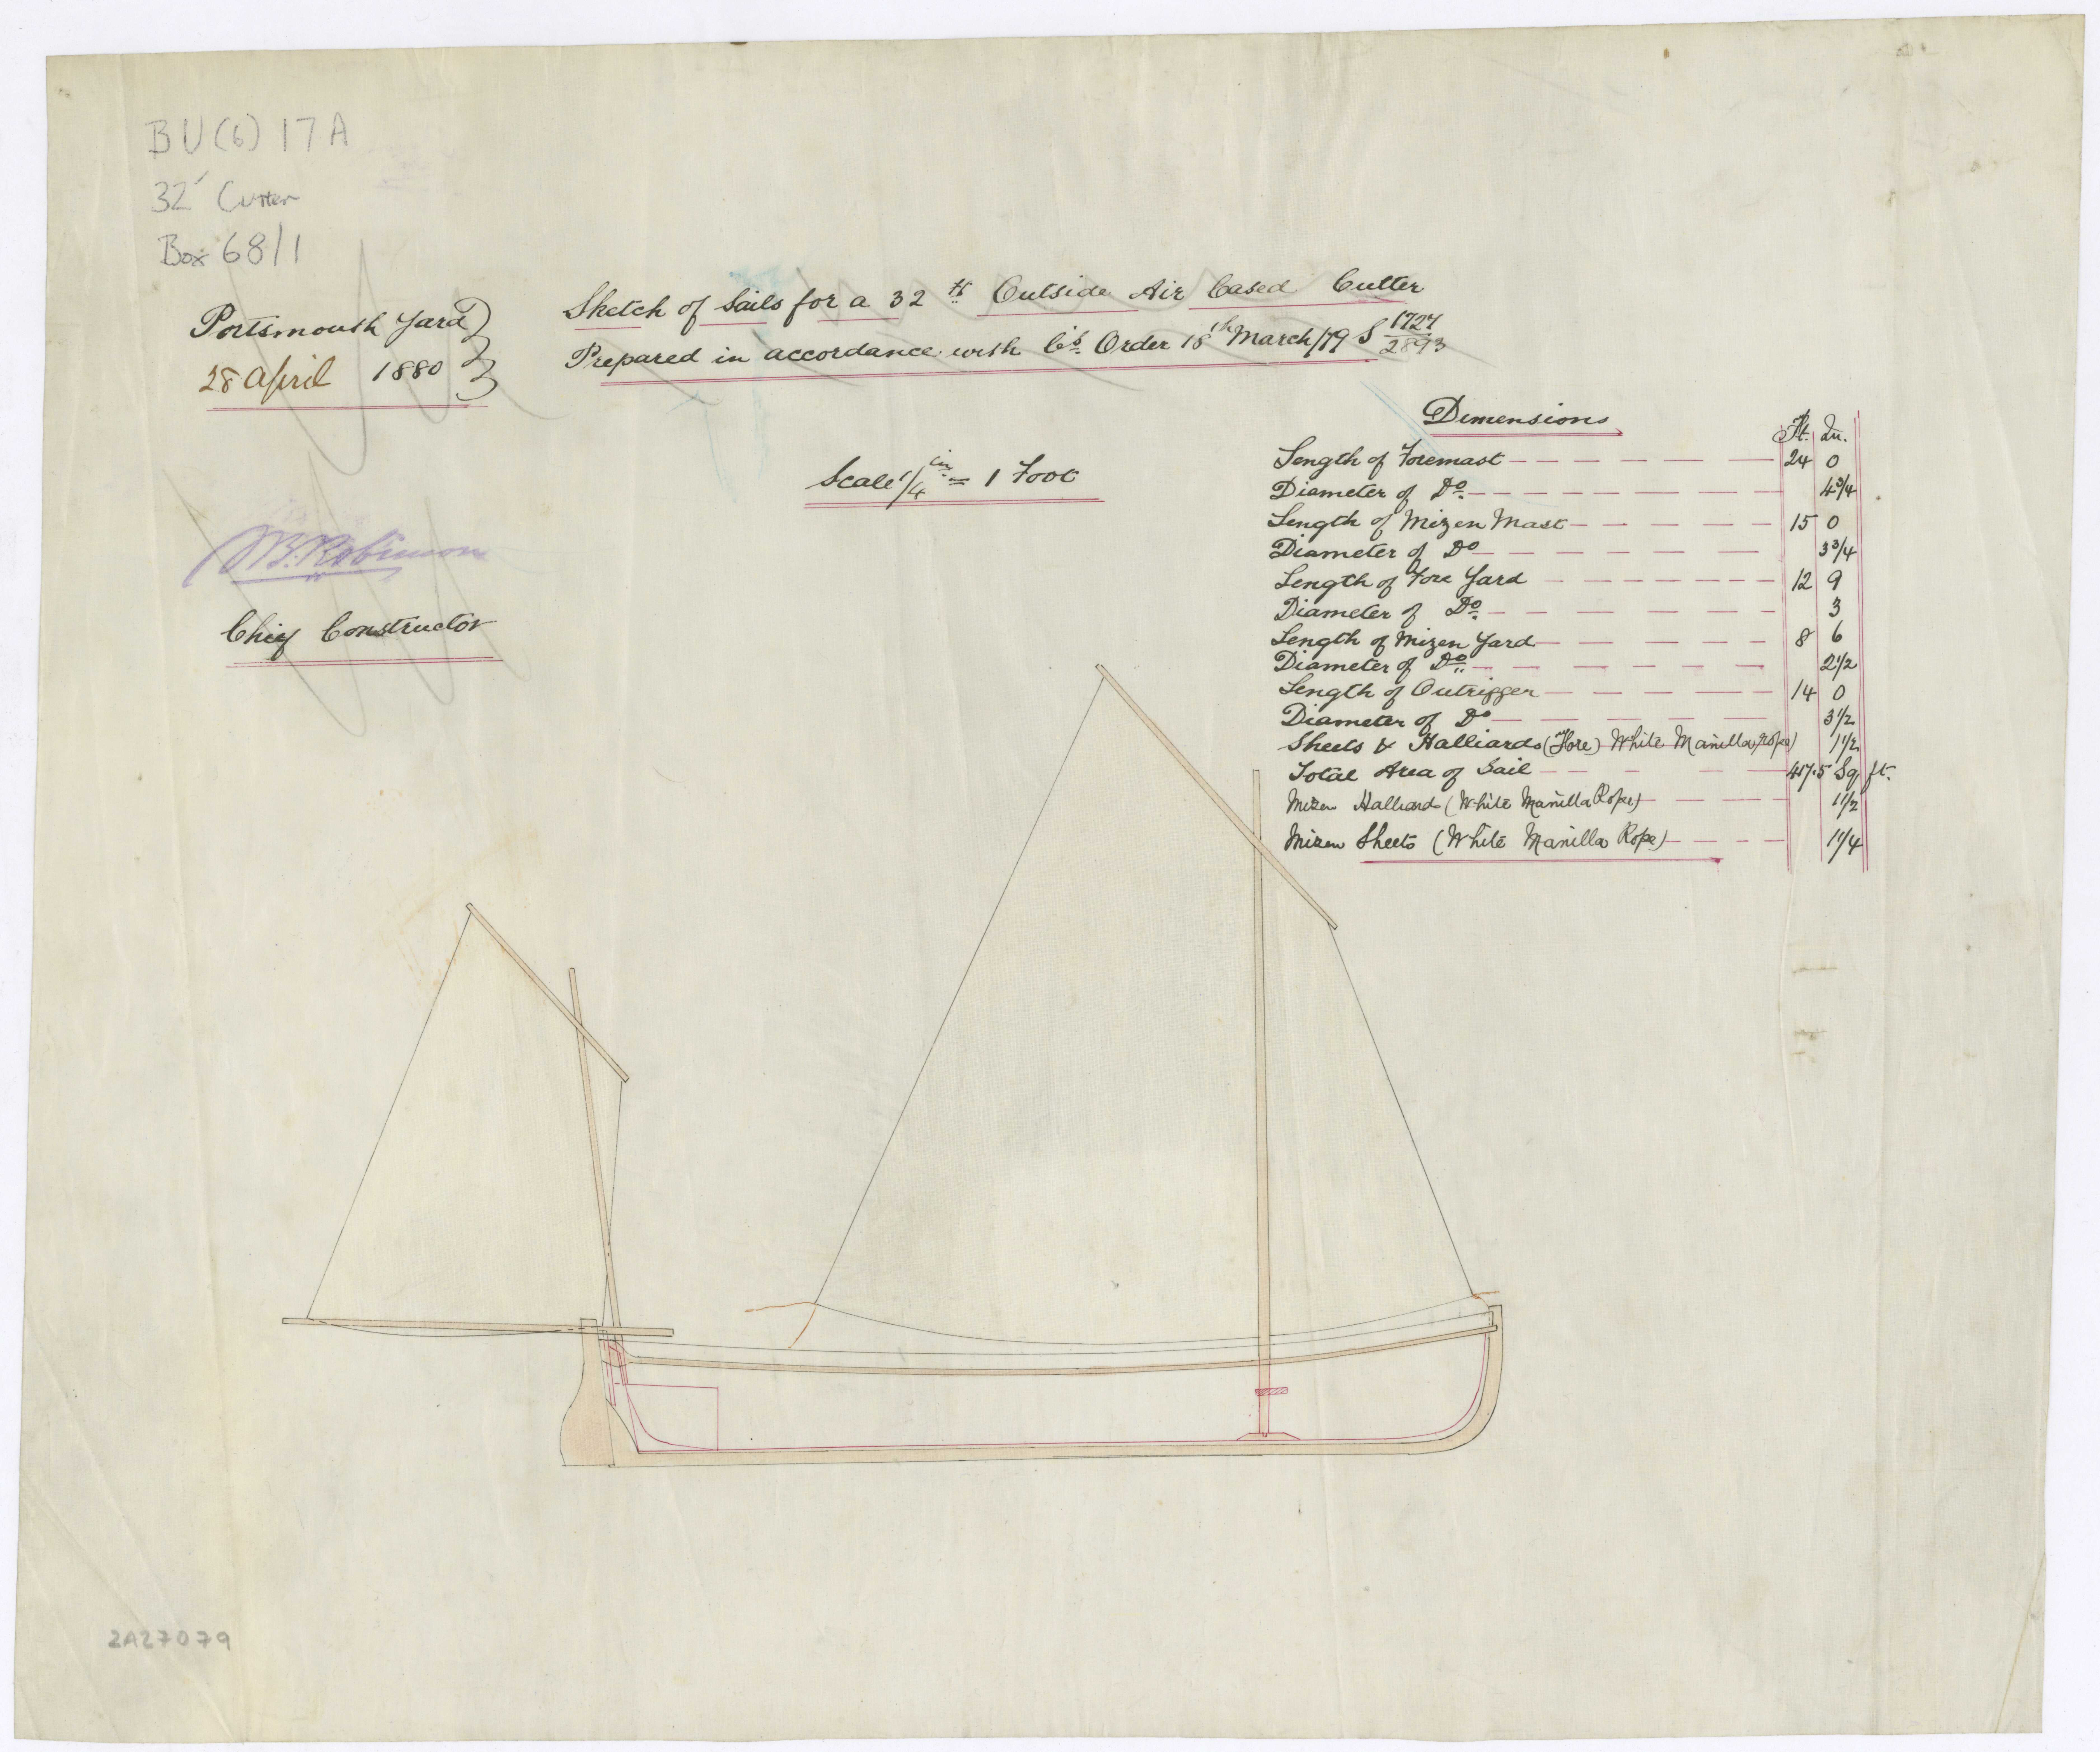 BU(6) 17A
32' Cutter
Box 68/1
Portsmouth Yard
28 April 1880
Sketch of Sails for a 32 ft Outside Air Cased Cutter
Prepared in accordance with Co's Order 18th March/79 S 1727/2893
Scale 1/4 in = 1 Foot
W.B. Robinson
Chief Constructor
Dimensions
Ft. In.
Length of Foremast 24 0
Diameter of Do 4 3/4
Length of Mizen Mast 15 0
Diameter of Do 3 3/4
Length of Fore Yard 12 9
Diameter of Do 3
Length of Mizen Yard 8 6
Diameter of Do 2 1/2
Length of Outrigger 14 0
Diameter of Do 3 1/2
Sheets & Halliards (Fore) White Manilla Rope) 1 1/2
Total Area of Sail 417.5 Sq ft.
Mizen Halliards (White Manilla Rope) 1 1/2
Mizen Sheets (White Manilla Rope) 1 1/4
2A27079